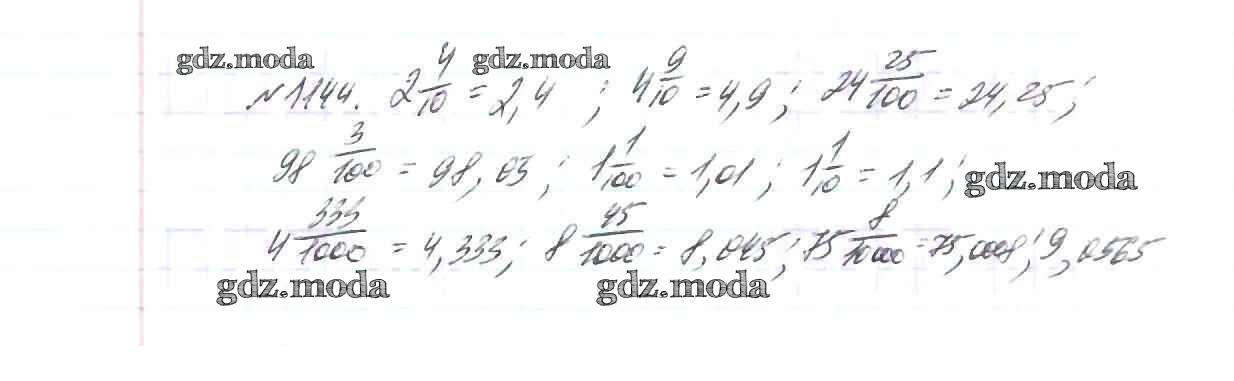 gdz.moda gdz.moda
№1144. 2 4/10 = 2,4 ; 4 9/10 = 4,9 ; 24 25/100 = 24,25 ;
98 3/100 = 98,03 ; 1 1/100 = 1,01 ; 1 1/10 = 1,1 ; gdz.moda
4 333/1000 = 4,333 ; 8 45/1000 = 8,045 ; 75 8/10000 = 75,0008 ; 9,0565
gdz.moda gdz.moda